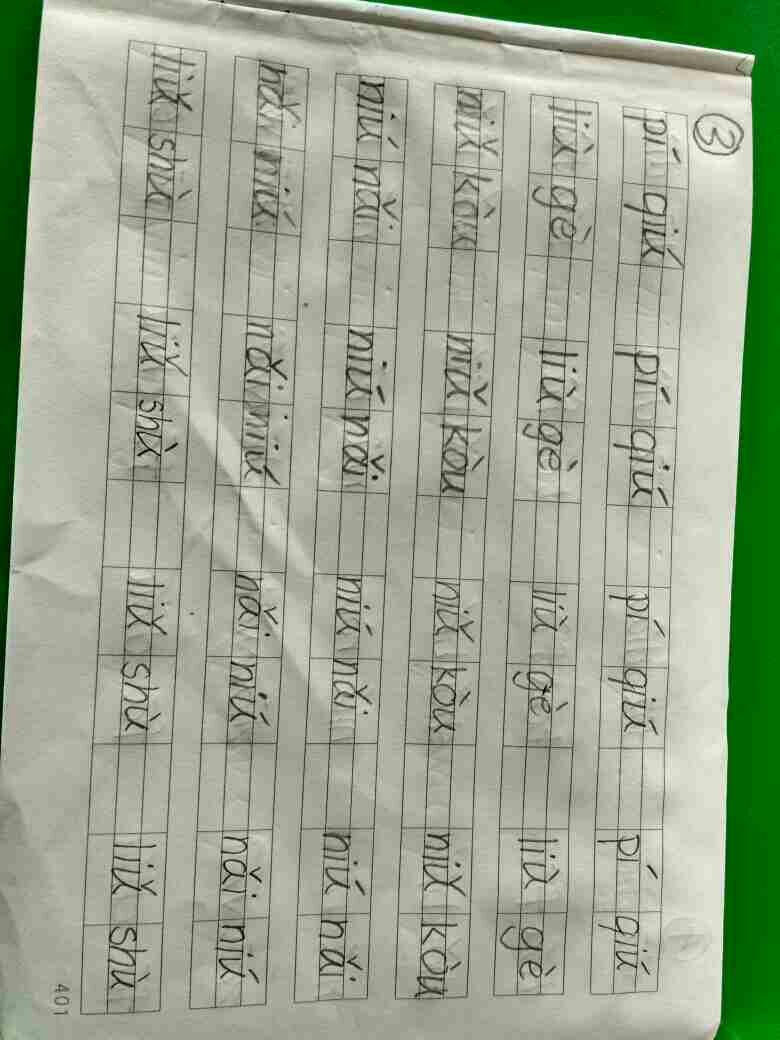 ③
pí qiú pí qiú pí qiú pí qiú
liù gè liù gè liù gè liù gè
niǔ kòu niǔ kòu niǔ kòu niǔ kòu
niú nǎi niú nǎi niú nǎi niú nǎi
nǎi niú nǎi niú nǎi niú nǎi niú
liǔ shù liǔ shù liǔ shù liǔ shù
401